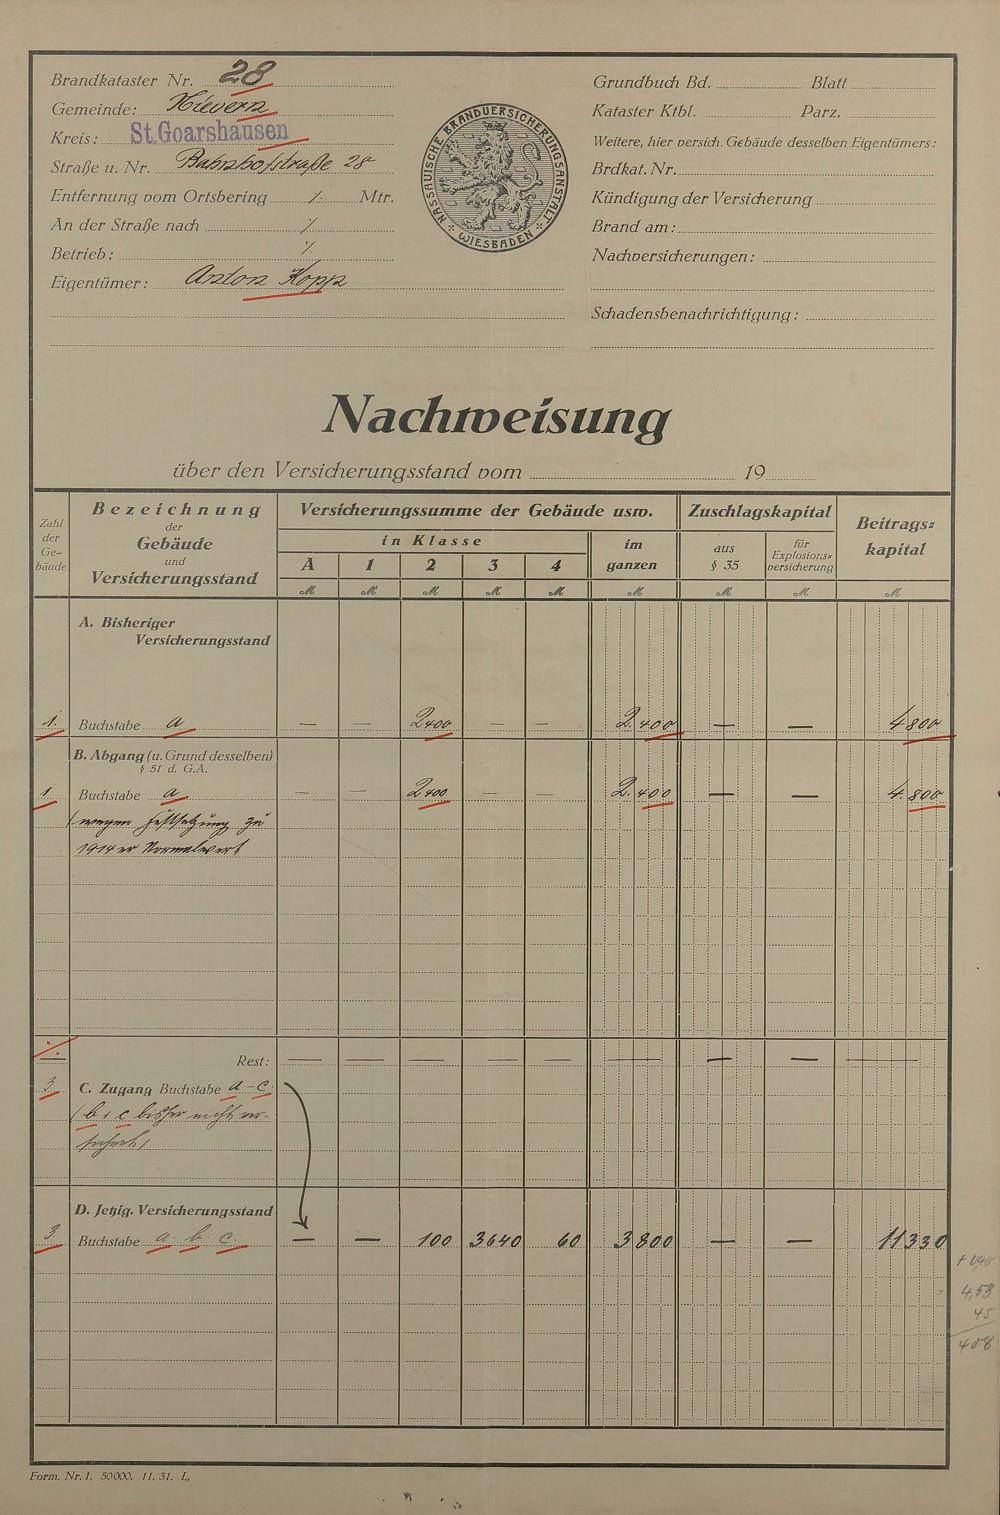 Brandkataster Nr. 28
Gemeinde: Nievern
Kreis: St. Goarshausen
Straße u. Nr. Bahnhofstraße 28
Entfernung vom Ortsbering ./. Mtr.
An der Straße nach ./.
Betrieb: ./.
Eigentümer: Anton Kopp
NASSAUISCHE BRANDVERSICHERUNGSANSTALT
WIESBADEN
Grundbuch Bd. Blatt
Kataster Ktbl. Parz.
Weitere, hier versich. Gebäude desselben Eigentümers:
Brdkat. Nr.
Kündigung der Versicherung
Brand am:
Nachversicherungen:
Schadensbenachrichtigung:
Nachweisung
über den Versicherungsstand vom 19
Zahl der Ge-bäude
Bezeichnung
der
Gebäude
und
Versicherungsstand
Versicherungssumme der Gebäude usw.
in Klasse
A 1 2 3 4
im ganzen
Zuschlagskapital
aus § 35
für Explosions=versicherung
Beitrags=kapital
ℳ ℳ ℳ ℳ ℳ ℳ ℳ ℳ ℳ
A. Bisheriger
Versicherungsstand
1. Buchstabe a — — 2400 — — 2.400 — — 4800
B. Abgang (u. Grund desselben)
§ 51 d. G.A.
1. Buchstabe a — — 2400 — — 2.400 — — 4.800
(wegen Festsetzung zu
1914er Normalwert
./. Rest: — — — — — — — — —
3. C. Zugang Buchstabe a-c.
(b + c bisher nicht ver-
sichert)
D. Jetzig. Versicherungsstand
3. Buchstabe a. b. c. — — 100 3640 60 3800 — — 11330
4,53
45
408
Form. Nr. 1. 50000. 11. 31. L.